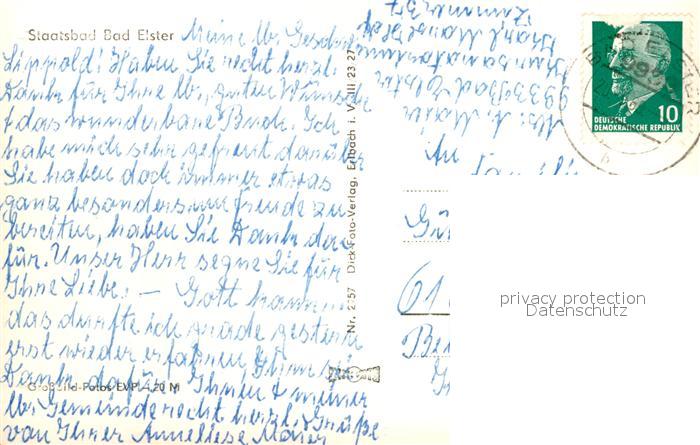 Staatsbad Bad Elster
Meine lb. Geschw.
Lippold! Haben Sie recht herzl.
Dank für Ihre lb., guten Wünsche
+ das wunderbare Buch. Ich
habe mich sehr gefreut darüber.
Sie haben doch immer etwas
ganz besonders um Freude zu
bereiten, haben Sie Dank da
für. Unser Herr segne Sie für
Ihre Liebe. — Gott
das durfte ich gerade gestern
erst wieder erfahren.
Dank dafür. Ihnen + meiner
lb. Gemeinde recht herzl. Grüße
von Ihrer Anneliese Maier
Großbild-Fotos EVP -.20 M
Nr. 2.57 Dick-Foto-Verlag, Erlbach i. V. III 23 27
A. Maier
9933 Bad Elster
Zimmer 37
An
DEUTSCHE
DEMOKRATISCHE REPUBLIK
10
61
privacy protection
Datenschutz